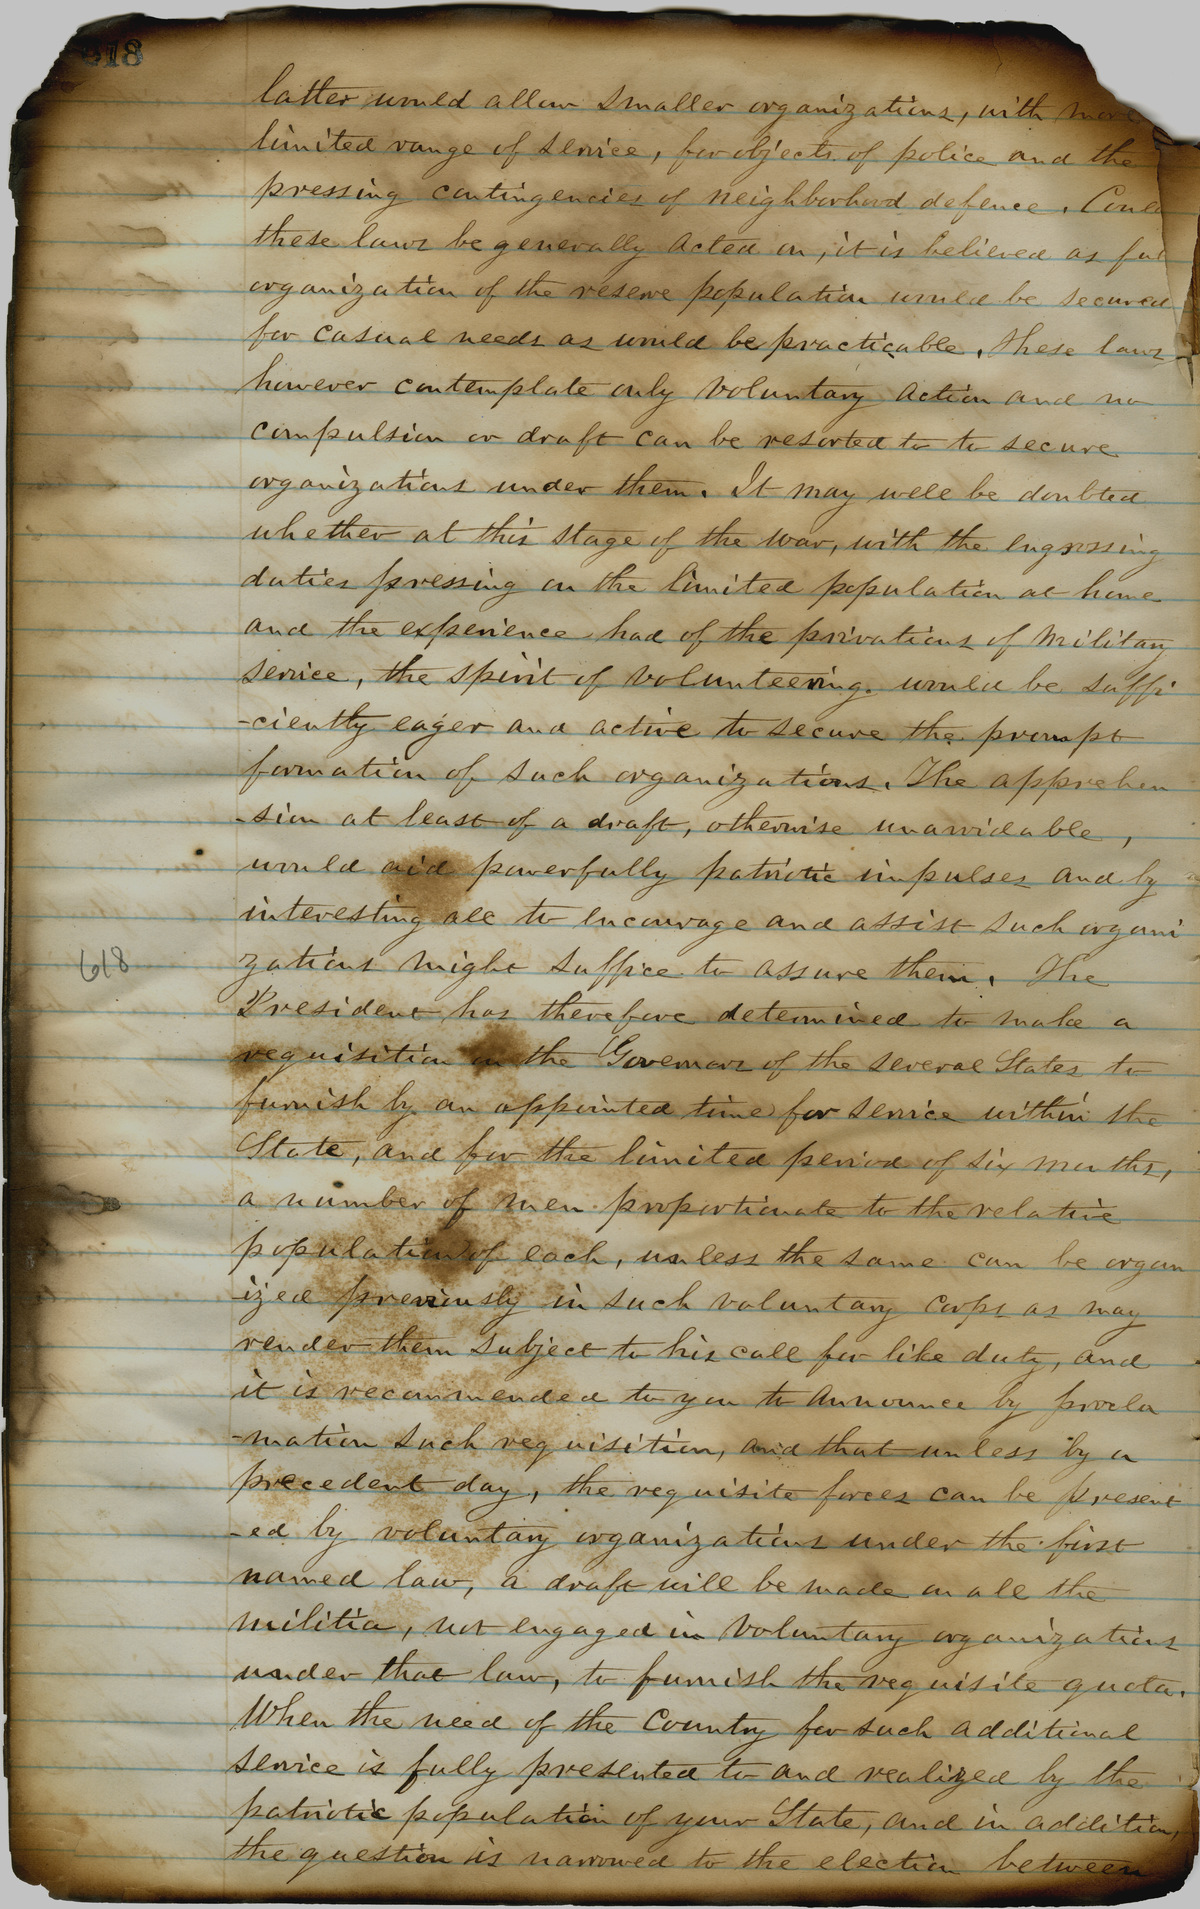 618
latter would allow smaller organizations, with more
limited range of service, for objects of police and the
pressing contingencies of neighborhood defence. Could
these laws be generally acted on, it is believed as full
organization of the reserve population would be secured
for casual needs as would be practicable. These laws
however contemplate only voluntary action and no
compulsion or draft can be resorted to to secure
organizations under them. It may well be doubted
whether at this stage of the war, with the engrossing
duties pressing on the limited population at home
and the experience had of the privations of military
service, the spirit of volunteering would be suffi
-ciently eager and active to secure the prompt
formation of such organizations. The apprehen
-sion at least of a draft, otherwise unavoidable,
would aid powerfully patriotic impulses and by
interesting all to encourage and assist such organi
618
zations might suffice to assure them. The
President has therefore determined to make a
requisition on the Governors of the several States to
furnish by an appointed time for service within the
State, and for the limited period of six months,
a number of men proportionate to the relative
population of each, unless the same can be organ
-ized previously in such voluntary corps as may
render them subject to his call for like duty, and
it is recommended to you to announce by procla
-mation such requisition, and that unless by a
precedent day, the requisite forces can be present
-ed by voluntary organizations under the first
named law, a draft will be made on all the
militia, not engaged in voluntary organizations
under that law, to furnish the requisite quota.
When the need of the Country for such additional
service is fully presented to and realized by the
patriotic population of your State, and in addition,
the question is narrowed to the election between